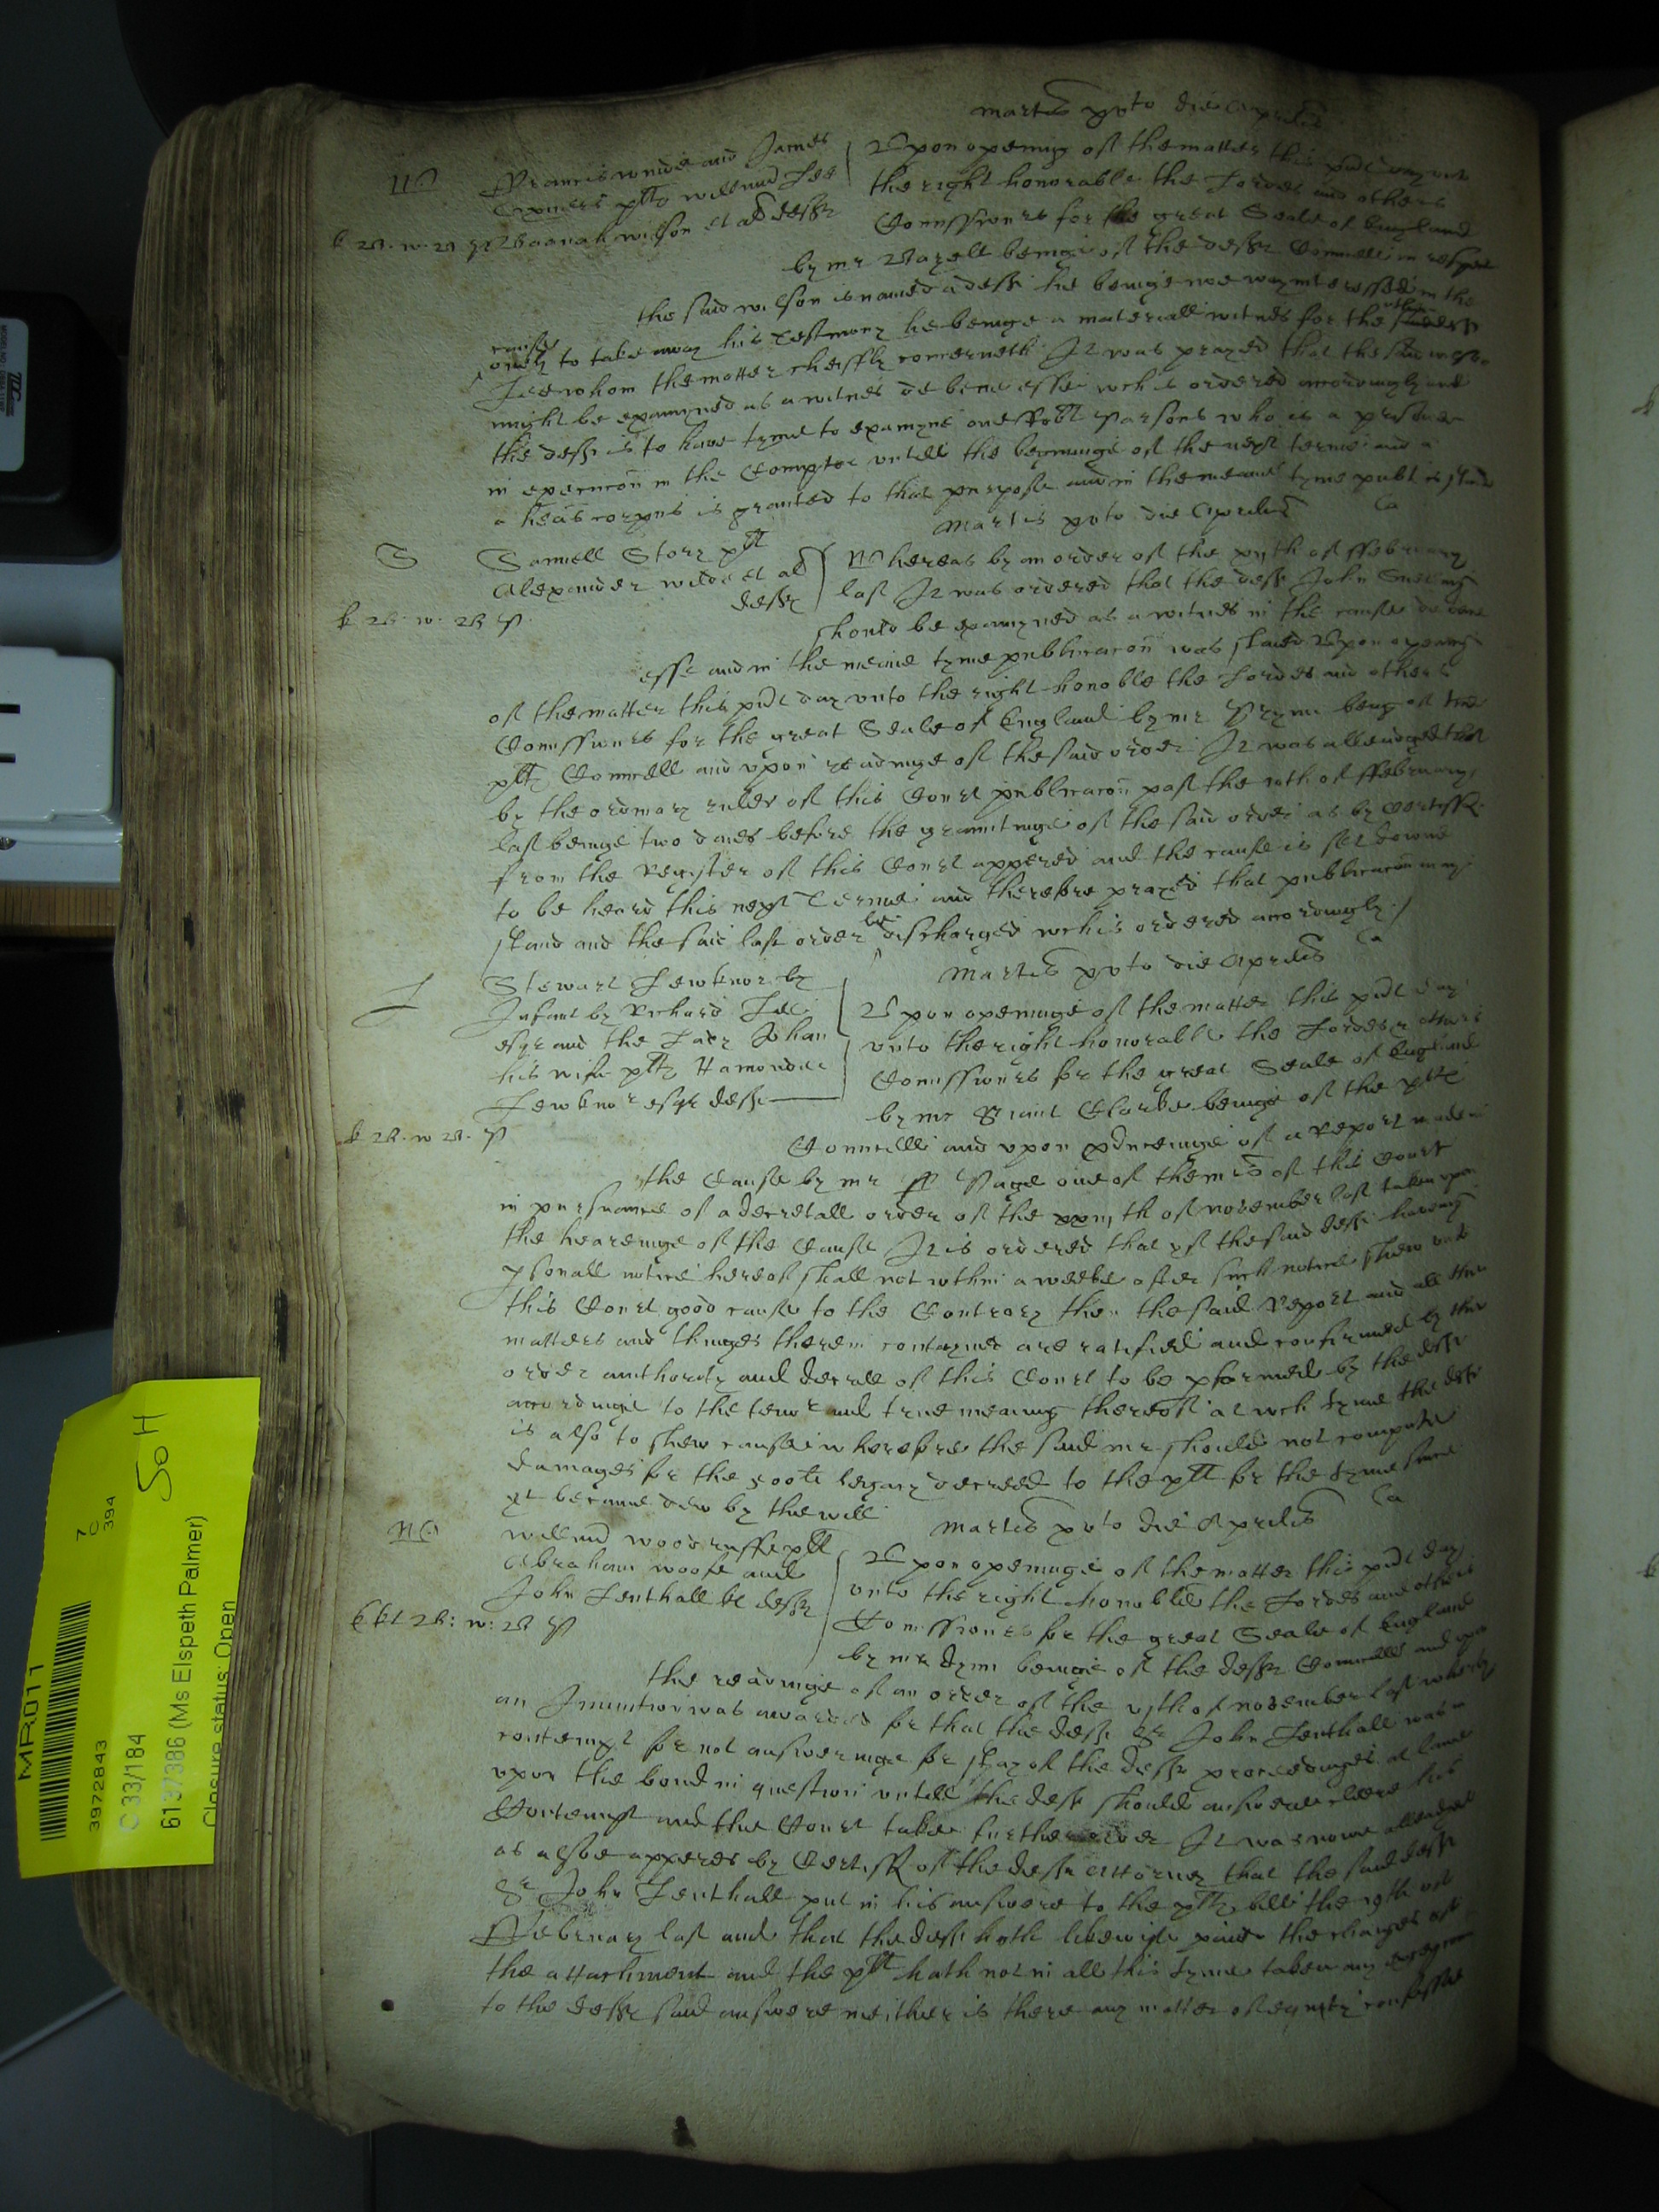 Martis xvto die Aprilis
W
Francis Weude and James
plts Willmu Lee
Wilson et al defts
Upon openinge of the matter this pnt day unto
the right honorable the Lordes and others
Comissioners for the great Seale of England
by mr beinge of the defts Councell in respect
the said Wilson is named a deft he beinge noe way interessed in the
cause
onely to take away his Testimony he beinge a materiall witnes for the other deft
Lee whom the matter cheiffly concerneth It was prayed that the said Wilson
might be examyned as a witnes de bene esse wch is ordered accordingly and
the deft is to have tyme to examyne one Robt Parsons who is a prisoner
in execucon in the Compter untill the beginninge of the next terme and a
a heas corpus is granted to that purpose and in the meane tyme publ is staid
Martis xvto die Aprilis Ca
S
Samuell Story plt
Alexander Wilde et al
defts
Whereas by an order of the xijth of ffebruary
last It was ordered that the deft John
should be examyned as a witnes in the cause de bene
esse and in the meane tyme publicacon was staied Upon openinge
of the matter this pnt day unto the right honoble the Lordes and others
Comissioners for the great Seale of England by mr Prynn being of the
plts Councell and upon readinge of the said order It was alleadged that
by the ordinary rules of this Court publicacon past the 10th of ffebruary
last beinge two daies before the grantinge of the said order as by Certiff
from the Register of this Court appered and the cause is set downe
to be heard this next Terme and therefore prayed that publicacon may
stand and the said last order be discharged wch is ordered accordingly
Martis xvto die Aprilis Ca
L
Stewart Lewknor
Infant by Richard Lee
esqr and the Lady Johan
his wife plts Hamond
Lewknor esqr deft
Upon openinge of the matter this pnt day
unto the right honorable the Lordes & others
Comissioners for the great Seale of England
by mr Sriant Clarke beinge of the plts
Councell and upon pducinge of a Report made in
the Cause by mr Page one of the mrs of this Court
in pursuance of a decretall order of the of November last taken upon
the hearinge of the Cause It is ordered that yf the said deft haveing
psonall notice hereof shall not wthin a weeke after such notice shew unto
this Court good cause to the Contrary then the said Report and all the
matters and thinges therein contayned are ratified and confirmed by the
order authority and decree of this Court to be pformed by the deft
accordinge to the tenor and true meaning thereof at wch tyme the deft
is also to shew cause wherefore the said mr should not compute
damages for the 500li legacy decreed to the plt for the tyme since
yt became dew by the will
Martis xvto die Aprilis Ca
W
Willmu Woodruffe plt
Abraham Woofe and
John Lenthall kt defts
Upon openinge of the matter this pnt day
unto the right honoble the Lordes and others
Comissioners for the great Seale of England
by mr beinge of the defts Councell and upon
the readinge of an order of the vjth of November last whereby
an Iniunction was awarded for that the deft Sr John Lenthall was in
contempt for not answeringe for stay of the defts proceedinges at lawe
upon the bond in question untill the deft should answere cleere his
Contempt and the Court take further order It was nowe alleadged
as alsoe apperes by Certiff of the defts Attorney that the said deft
Sr John Lenthall put in his answere to the plts bill the 19th of
ffebruary last and that the deft hath likewise paid the charges of
the attachment and the plt hath not in all this tyme taken any excepcon
to the defts said answere neither is there any matter of equity confessed
MR011
3972843
7
C
394
So H
C 33/184
6137386 (Ms Elspeth Palmer)
Closure status: Open